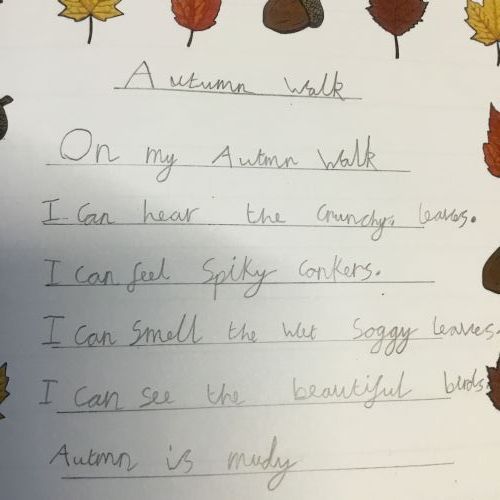 Autumn walk
On my Autmn walk
I can hear the crunchy leaves.
I can feel Spiky conkers.
I can smell the wet soggy leaves.
I can see the beautiful birds.
Autmn is mudy